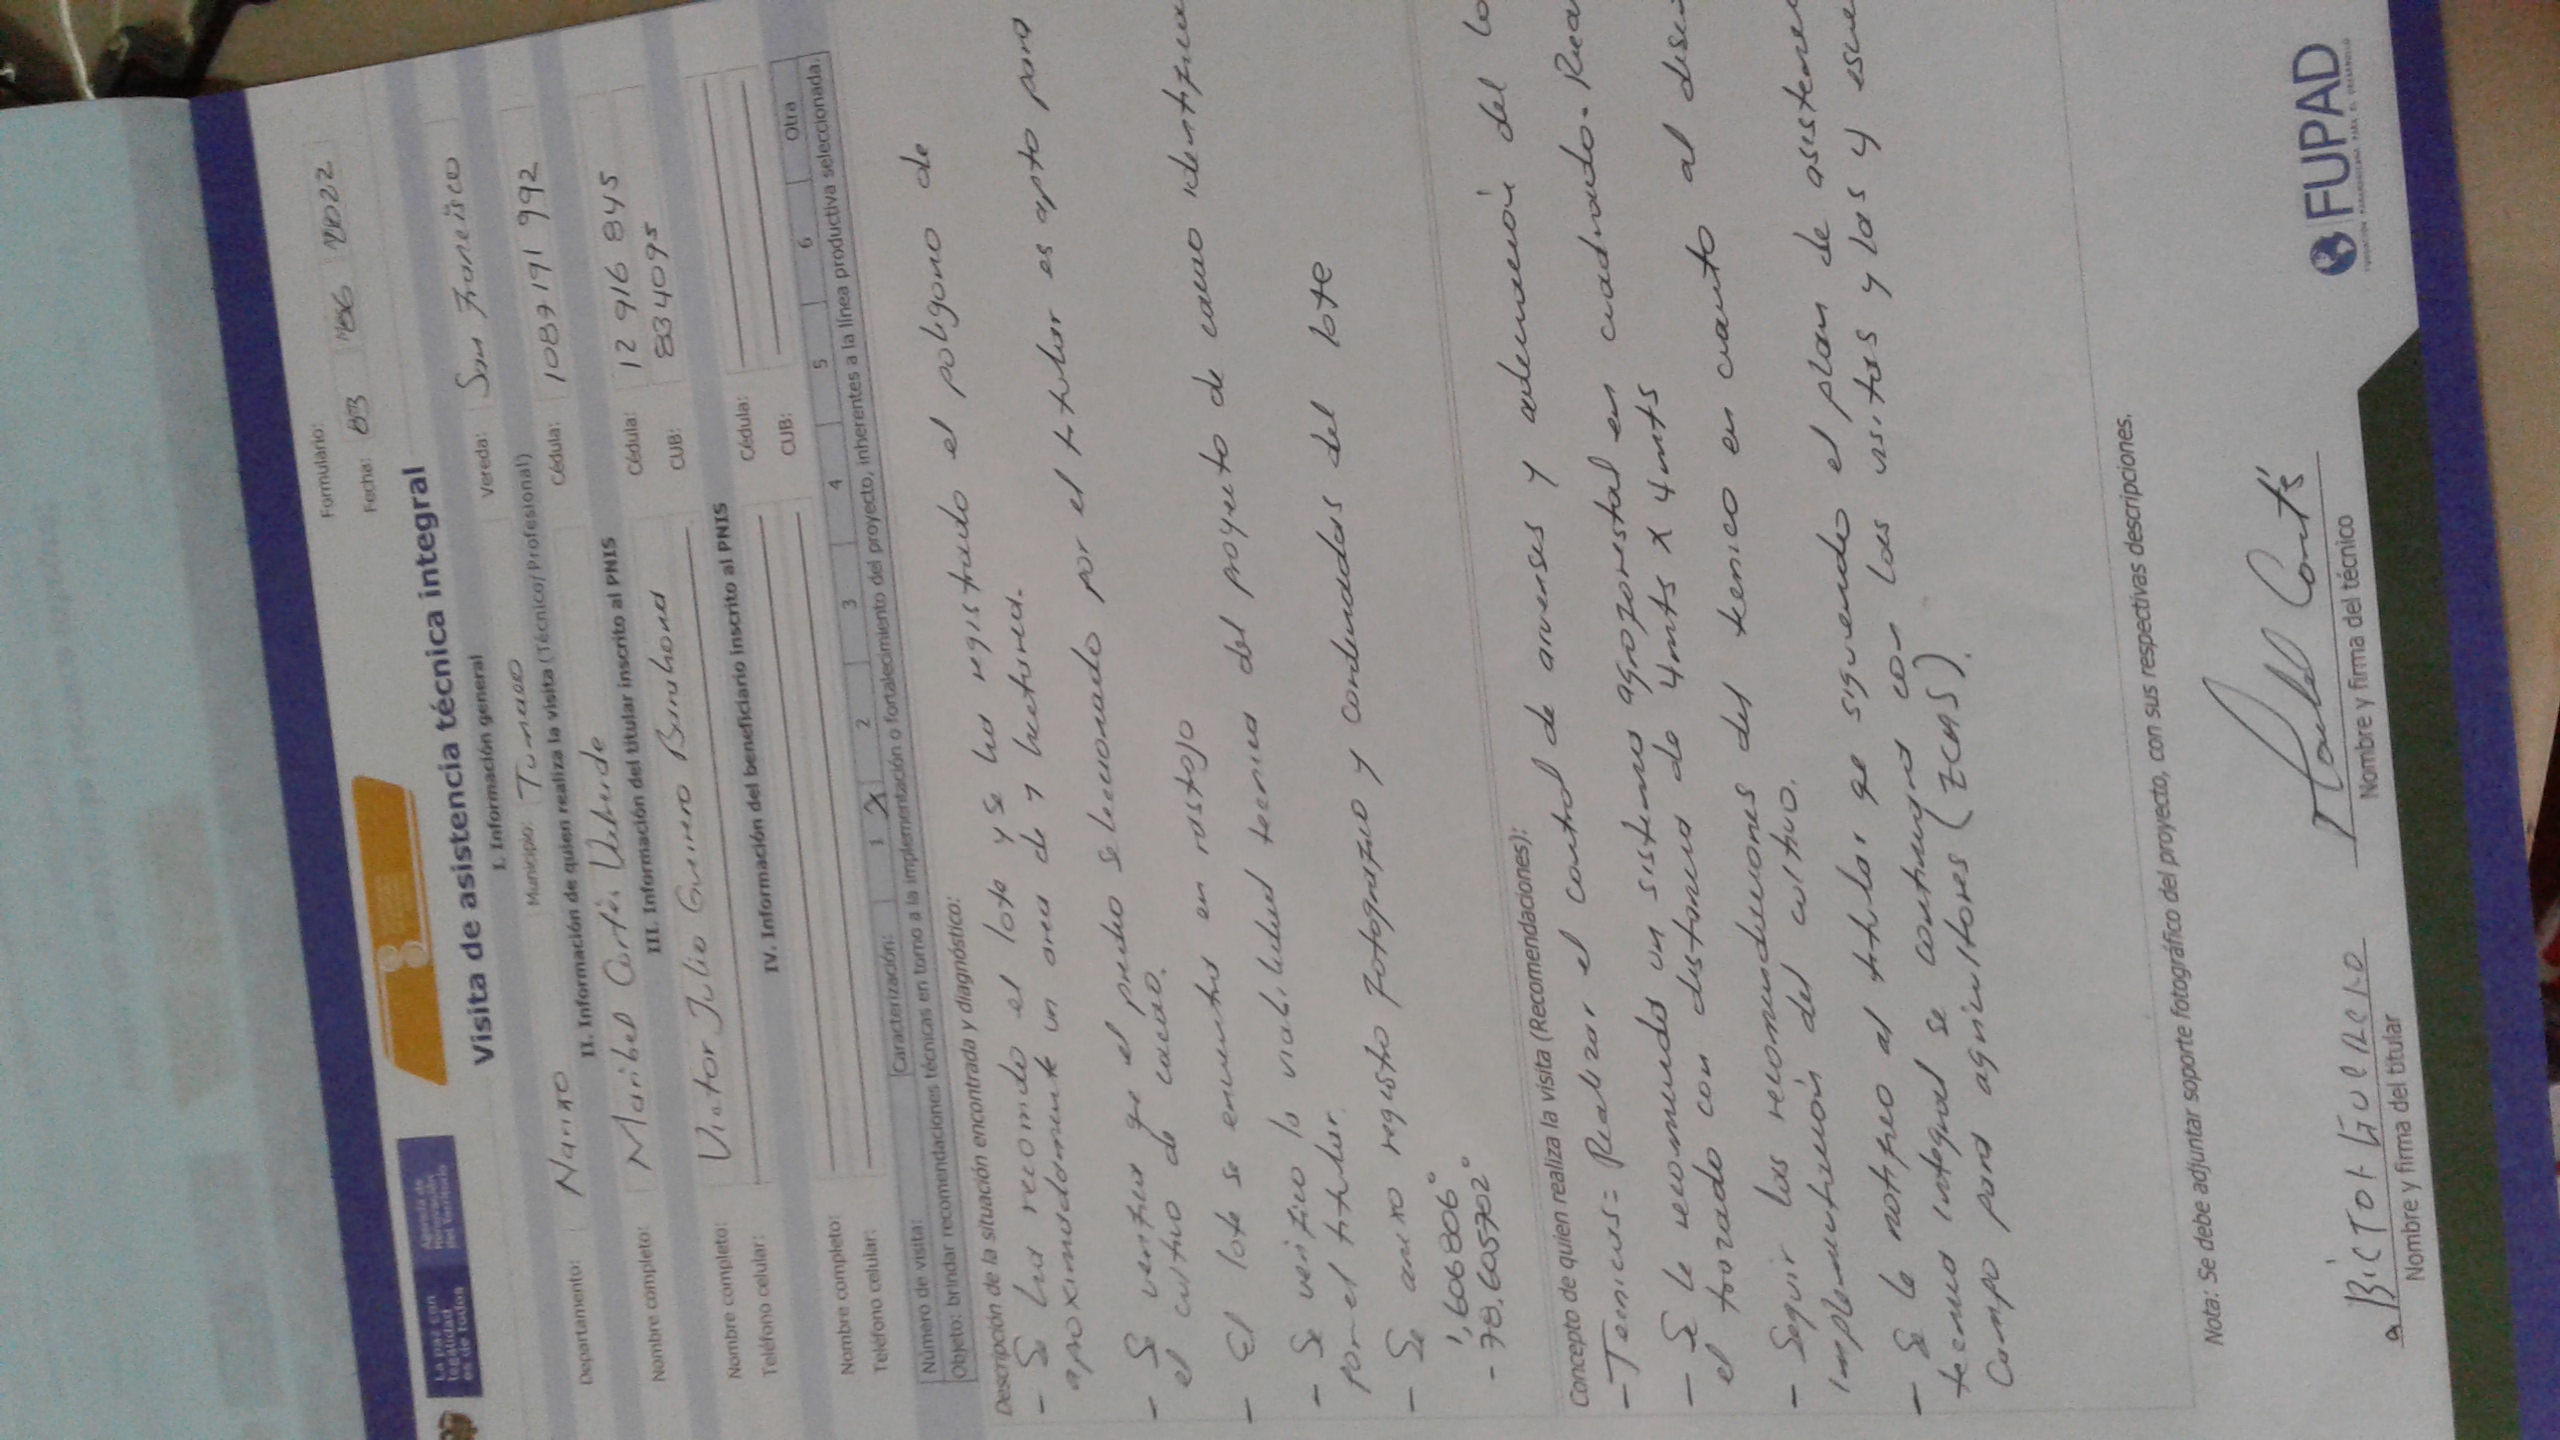 La paz con
legalidad
es de todos
Agencia de
Renovación
del Territorio
Formulario:
Fecha: 03 06 2022
Visita de asistencia técnica integral
I. Información general
Departamento: Nariño Municipio: Tumaco Vereda: San Francisco
II. Información de quien realiza la visita (Técnico/Profesional)
Nombre completo: Maribel Cortés Cédula: 1089191992
III. Información del titular inscrito al PNIS
Nombre completo: Victor Julio Guerrero Barahona Cédula: 12 916 845
Teléfono celular: CUB: 834095
IV. Información del beneficiario inscrito al PNIS
Nombre completo: Cédula:
Teléfono celular: CUB:
Número de visita: Caracterización: 1 X 2 3 4 5 6 Otra
Objeto: brindar recomendaciones técnicas en torno a la implementación o fortalecimiento del proyecto, inherentes a la línea productiva seleccionada.
Descripción de la situación encontrada y diagnóstico:
- Se ha recorrido el lote y se ha registrado el poligono de
aproximadamente un area de y hectarea.
- Se verifica qe el predio seleccionado por el titular es apto para
el cultivo de cacao.
- El lote se encuentra en rastojo
- Se verifico la viabilidad tecnica del proyecto de cacao identificad
por el titular.
- Se anexo registro fotografico y cordenadas del lote
1,606806°
-78,605702°
Concepto de quien realiza la visita (Recomendaciones):
- Tecnicas = Realizar el control de arvenses y adecuación del lo
- Se le recomienda un sistema agroforestal en cuadrado. Rea
el trazado con distancia de 4mts x 4mts
- Seguir las recomendaciones del tecnico en cuanto al
implementación del cultivo.
- Se le notifico al titular qe siguiendo el plan de asistenci
tecnica integral se continuara con las visitas y las y escue
Campo para agricultores (ECAS).
Nota: Se debe adjuntar soporte fotográfico del proyecto, con sus respectivas descripciones.
Bictor Guerrero
Nombre y firma del titular
Maribel Cortés
Nombre y firma del técnico
FUPAD
FUNDACIÓN PANAMERICANA PARA EL DESARROLLO